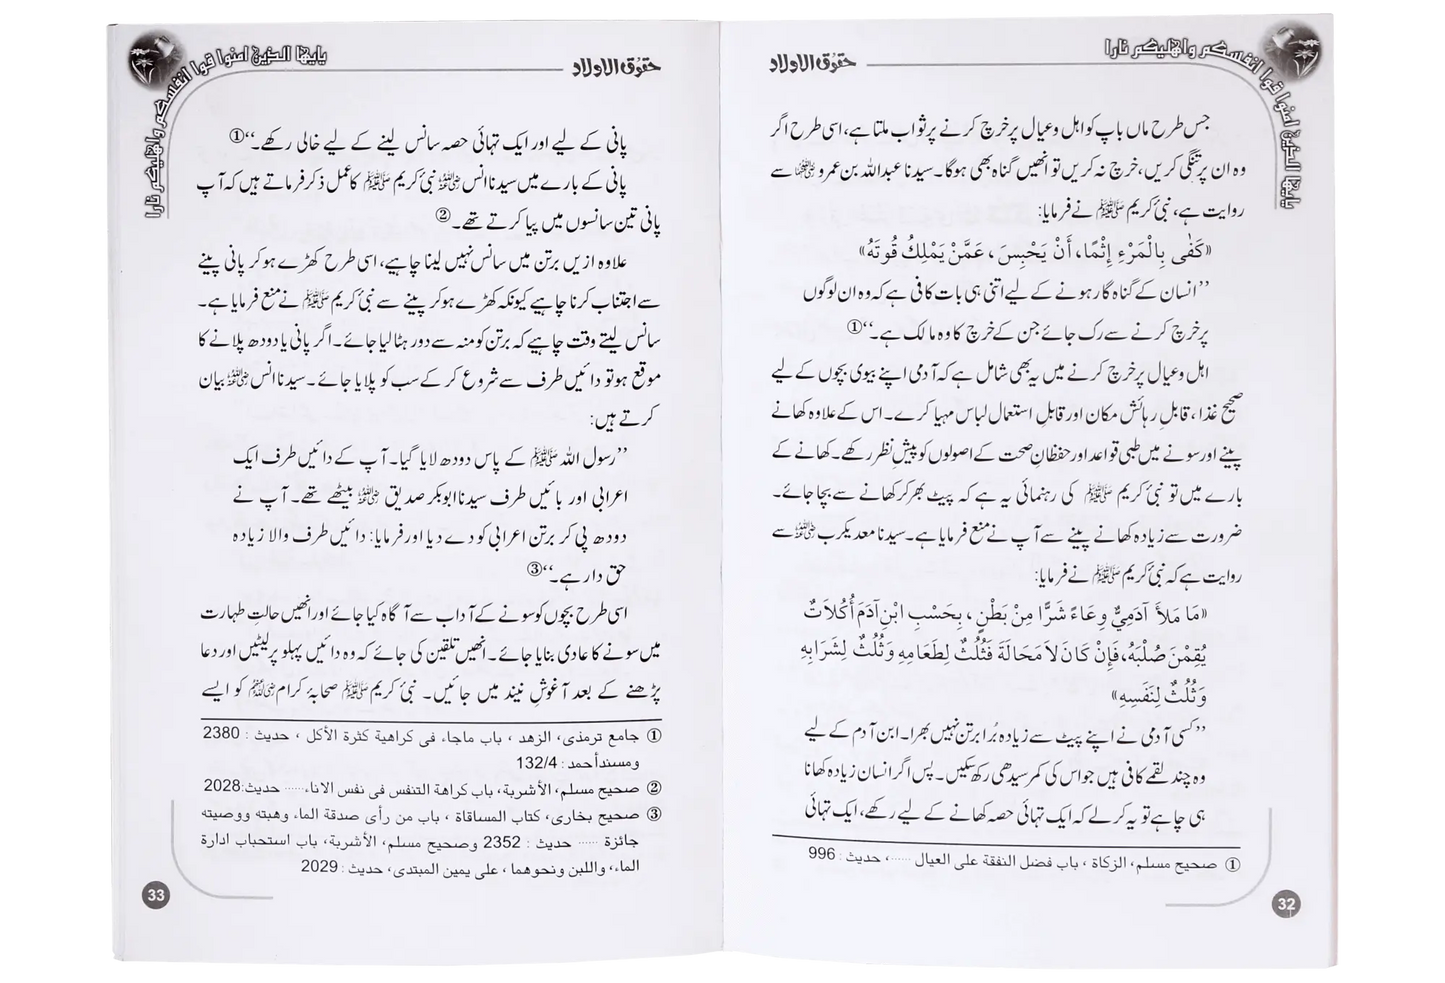 یایها الذین امنوا قوا انفسکم واهلیکم نارا
حقوق الاولاد
جس طرح ماں باپ کو اہل و عیال پر خرچ کرنے پر ثواب ملتا ہے، اسی طرح اگر
وہ ان پر تنگی کریں، خرچ نہ کریں تو انھیں گناہ بھی ہوگا۔ سیدنا عبداللہ بن عمرو رضی اللہ عنہما سے
روایت ہے، نبیٔ کریم ﷺ نے فرمایا:
«كَفٰى بِالْمَرْءِ إِثْمًا، أَنْ يَحْبِسَ، عَمَّنْ يَمْلِكُ قُوتَهُ»
’’انسان کے گناہ گار ہونے کے لیے اتنی ہی بات کافی ہے کہ وہ ان لوگوں
پر خرچ کرنے سے رک جائے جن کے خرچ کا وہ مالک ہے۔‘‘①
اہل و عیال پر خرچ کرنے میں یہ بھی شامل ہے کہ آدمی اپنے بیوی بچوں کے لیے
صحیح غذا، قابلِ رہائش مکان اور قابلِ استعمال لباس مہیا کرے۔ اس کے علاوہ کھانے
پینے اور سونے میں طبی قواعد اور حفظانِ صحت کے اصولوں کو پیشِ نظر رکھے۔ کھانے کے
بارے میں تو نبیٔ کریم ﷺ کی رہنمائی یہ ہے کہ پیٹ بھر کر کھانے سے بچا جائے۔
ضرورت سے زیادہ کھانے پینے سے آپ نے منع فرمایا ہے۔ سیدنا معدیکرب رضی اللہ عنہ سے
روایت ہے کہ نبیٔ کریم ﷺ نے فرمایا:
«مَا مَلأَ آدَمِيٌّ وِعَاءً شَرًّا مِنْ بَطْنٍ، بِحَسْبِ ابْنِ آدَمَ أُكُلَاتٌ
يُقِمْنَ صُلْبَهُ، فَإِنْ كَانَ لَا مَحَالَةَ فَثُلُثٌ لِطَعَامِهِ وَثُلُثٌ لِشَرَابِهِ
وَثُلُثٌ لِنَفَسِهِ»
’’کسی آدمی نے اپنے پیٹ سے زیادہ بُرا برتن نہیں بھرا۔ ابن آدم کے لیے
وہ چند لقمے کافی ہیں جو اس کی کمر سیدھی رکھ سکیں۔ پس اگر انسان زیادہ کھانا
ہی چاہے تو یہ کرلے کہ ایک تہائی حصہ کھانے کے لیے رکھے، ایک تہائی
① صحیح مسلم، الزکاة ، باب فضل النفقة علی العیال ......، حدیث : 996
32
یایها الذین امنوا قوا انفسکم واهلیکم نارا
حقوق الاولاد
پانی کے لیے اور ایک تہائی حصہ سانس لینے کے لیے خالی رکھے۔‘‘①
پانی کے بارے میں سیدنا انس رضی اللہ عنہ نبیٔ کریم ﷺ کا عمل ذکر فرماتے ہیں کہ آپ
پانی تین سانسوں میں پیا کرتے تھے۔②
علاوہ ازیں برتن میں سانس نہیں لینا چاہیے، اسی طرح کھڑے ہو کر پانی پینے
سے اجتناب کرنا چاہیے کیونکہ کھڑے ہو کر پینے سے نبیٔ کریم ﷺ نے منع فرمایا ہے۔
سانس لیتے وقت چاہیے کہ برتن کو منہ سے دور ہٹا لیا جائے۔ اگر پانی یا دودھ پلانے کا
موقع ہو تو دائیں طرف سے شروع کر کے سب کو پلایا جائے۔ سیدنا انس رضی اللہ عنہ بیان
کرتے ہیں:
’’رسول اللہ ﷺ کے پاس دودھ لایا گیا۔ آپ کے دائیں طرف ایک
اعرابی اور بائیں طرف سیدنا ابوبکر صدیق رضی اللہ عنہ بیٹھے تھے۔ آپ نے
دودھ پی کر برتن اعرابی کو دے دیا اور فرمایا: دائیں طرف والا زیادہ
حق دار ہے۔‘‘③
اسی طرح بچوں کو سونے کے آداب سے آگاہ کیا جائے اور انھیں حالتِ طہارت
میں سونے کا عادی بنایا جائے۔ انھیں تلقین کی جائے کہ وہ دائیں پہلو پر لیٹیں اور دعا
پڑھنے کے بعد آغوشِ نیند میں جائیں۔ نبیٔ کریم ﷺ صحابۂ کرام رضی اللہ عنہم کو ایسے
① جامع ترمذی، الزهد ، باب ماجاء فی کراهية کثرة الأکل ، حدیث : 2380
ومسندأحمد : 132/4
② صحیح مسلم، الأشربة، باب کراهة التنفس فی نفس الاناء...... حدیث:2028
③ صحیح بخاری، کتاب المساقاة ، باب من رأی صدقة الماء وهبته ووصیته
جائزة ...... حدیث : 2352 وصحیح مسلم، الأشربة، باب استحباب ادارة
الماء، واللبن ونحوهما ، علی یمین المبتدی، حدیث : 2029
33